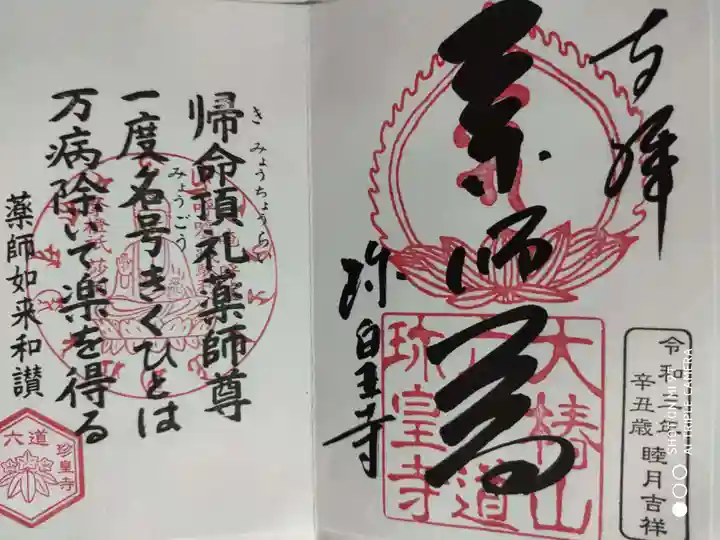 奉拝
薬師尊
珍皇寺
大椿山
六道
珍皇寺
令和三年
辛丑歳 睦月吉祥
帰命頂礼薬師尊
きみょうちょうらい
一度名号きくひとは
みょうごう
万病除いて楽を得る
薬師如来和讃
六道
珍皇寺
SHOT ON MI
AI TRIPLE CAMERA